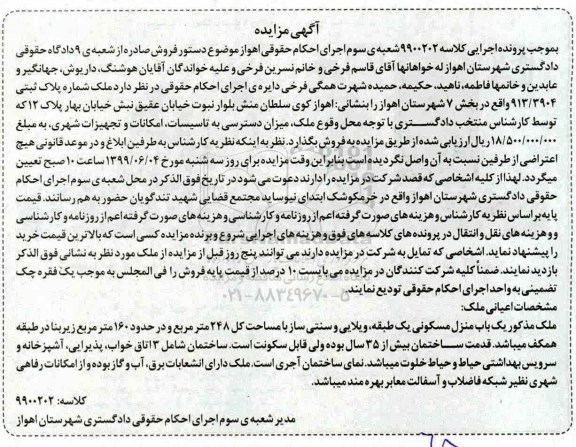 آگهی مزایده
بموجب پرونده اجرایی کلاسه ۹۹۰۰۲۰۲ شعبه ی سوم اجرای احکام حقوقی اهواز موضوع دستور فروش صادره از شعبه ی ۹ دادگاه حقوقی
دادگستری شهرستان اهواز له خواهانها آقای قاسم فرخی و خانم نسرین فرخی و علیه خواندگان آقایان هوشنگ، داریوش، جهانگیر و
عابدین و خانمها فاطمه، ناهید، حکیمه، حمیده شهرت همگی فرخی دایره ی اجرای احکام حقوقی در نظر دارد ملک شماره پلاک ثبتی
۹۱۳/۳۹۰۴ واقع در بخش ۷ شهرستان اهواز را بنشانی: اهواز کوی سلطان منش بلوار نبوت خیابان عقیق نبش خیابان بهار پلاک ۱۲ که
توسط کارشناس منتخب دادگستری با توجه محل وقوع ملک، میزان دسترسی به تاسیسات، امکانات و تجهیزات شهری، به مبلغ
۱۸/۵۰۰/۰۰۰/۰۰۰ ریال ارزیابی شده از طریق مزایده به فروش بگذارد. نظر به اینکه نظریه کارشناس به طرفین ابلاغ و در موعد قانونی هیچ
اعتراضی از طرفین نسبت به آن واصل نگردیده است بنابراین وقت مزایده برای روز سه شنبه مورخ ۱۳۹۹/۰۶/۰۴ ساعت ۱۰ صبح تعیین
میگردد. لهذا از کلیه اشخاصی که قصد شرکت در مزایده را دارند دعوت می شود در تاریخ فوق الذکر در محل شعبه ی سوم اجرای احکام
حقوقی دادگستری شهرستان اهواز واقع در خرمکوشک ابتدای نیوساید مجتمع قضایی شهید تندگویان حضور به هم رسانند. قیمت
پایه براساس نظریه کارشناس و هزینه های صورت گرفته اعم از روزنامه و کارشناسی و هزینه های صورت گرفته اعم از روزنامه و کارشناسی
و و هزینه های نقل و انتقال در پرونده های کلاسه های فوق و هزینه های اجرایی شروع و برنده مزایده کسی است که بالاترین قیمت خرید
را پیشنهاد نماید. اشخاصی که تمایل به شرکت در مزایده دارند می توانند پنج روز قبل از مزایده از ملک مورد نظر به نشانی فوق الذکر
بازدید نمایند. ضمناً کلیه شرکت کنندگان در مزایده می بایست ۱۰ درصد از قیمت پایه فروش را فی المجلس به موجب یک فقره چک
تضمینی به واحد اجرای احکام حقوقی تودیع نمایند.
۰۲۱-۸۸۳۴۹۶۷۰-۵
مشخصات اعیانی ملک:
ملک مذکور یک باب منزل مسکونی یک طبقه، ویلایی و سنتی ساز با مساحت کل ۲۴۸ متر مربع و در حدود ۱۶۰ متر مربع زیربنا در طبقه
همکف میباشد. قدمت ساختمان بیش از ۳۵ سال بوده ولی قابل سکونت است. ساختمان شامل ۱۳ تاق خواب، پذیرایی، آشپزخانه و
سرویس بهداشتی حیاط و حیاط خلوت میباشد. نمای ساختمان آجری است. ملک دارای انشعابات برق، آب و گاز بوده و از امکانات رفاهی
شهری نظیر شبکه فاضلاب و آسفالت معابر بهره مند میباشد.
کلاسه: ۹۹۰۰۲۰۲
مدیر شعبه ی سوم اجرای احکام حقوقی دادگستری شهرستان اهواز